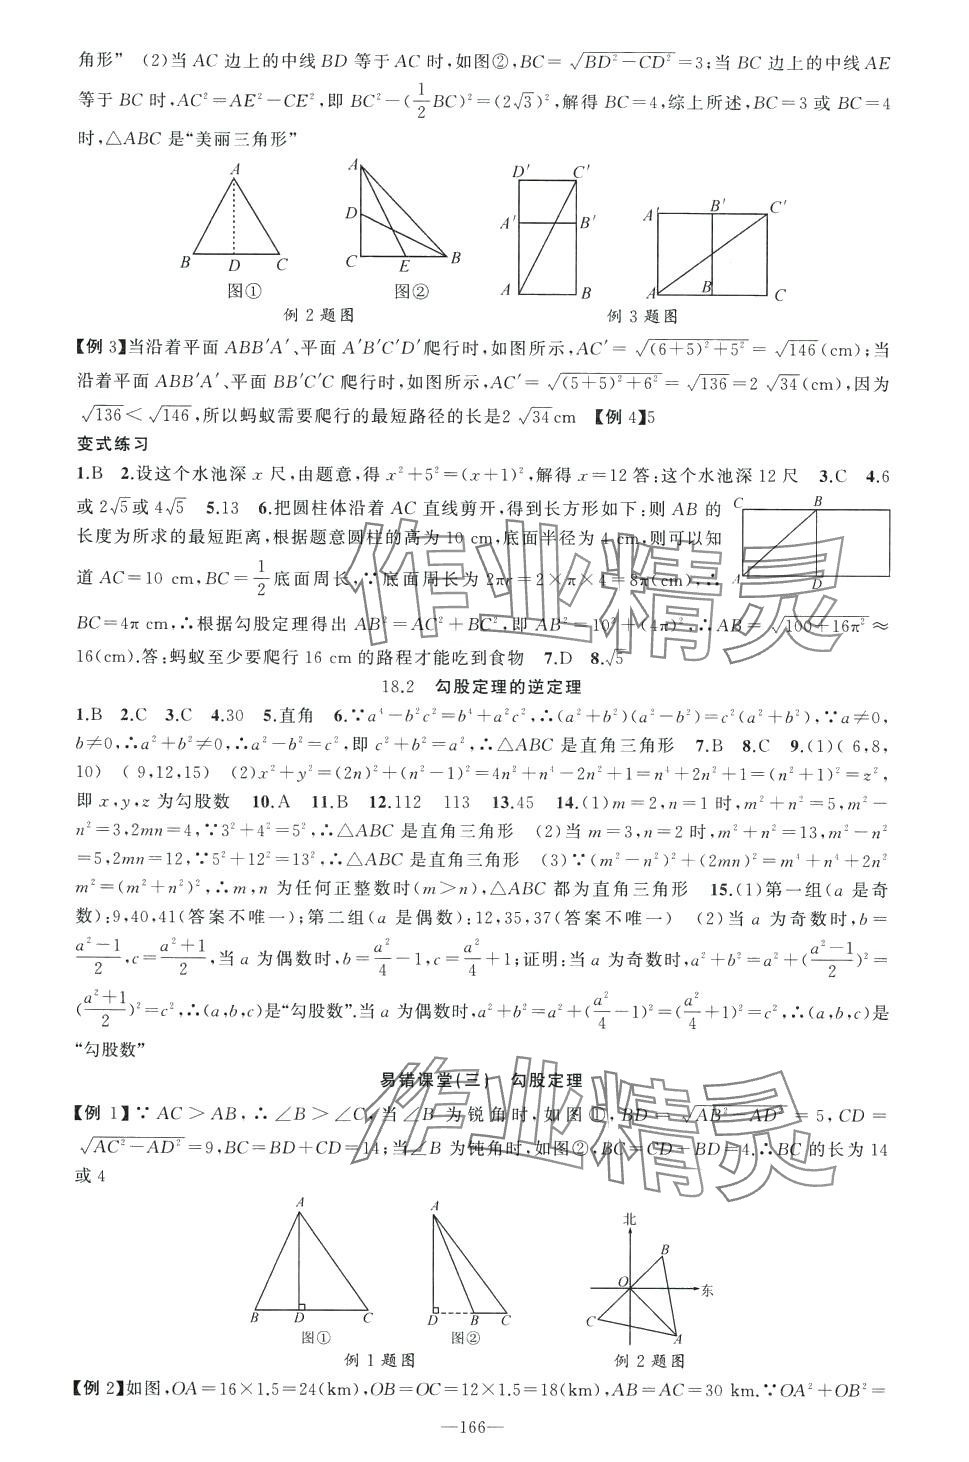 角形” (2)当 AC 边上的中线 BD 等于 AC 时,如图②,BC=√(BD²-CD²)=3;当 BC 边上的中线 AE
等于 BC 时,AC²=AE²-CE²,即 BC²-(1/2 BC)²=(2√3)²,解得 BC=4,综上所述,BC=3 或 BC=4
时,△ABC 是“美丽三角形”
A B D C 图①
A D C E B 图②
例 2 题图
D′ C′ A′ B′ A B
A′ B′ C′ A B C
例 3 题图
【例 3】当沿着平面 ABB′A′、平面 A′B′C′D′爬行时,如图所示,AC′=√((6+5)²+5²)=√146(cm);当
沿着平面 ABB′A′、平面 BB′C′C 爬行时,如图所示,AC′=√((5+5)²+6²)=√136=2√34(cm),因为
√136<√146,所以蚂蚁需要爬行的最短路径的长是2√34cm 【例 4】5
变式练习
1.B 2.设这个水池深 x 尺,由题意,得 x²+5²=(x+1)²,解得 x=12 答:这个水池深 12 尺 3.C 4.6
或 2√5或 4√5 5.13 6.把圆柱体沿着 AC 直线剪开,得到长方形如下:则 AB 的
长度为所求的最短距离,根据题意圆柱的高为 10 cm,底面半径为 4 cm,则可以知
道 AC=10 cm,BC=1/2底面周长,∵底面周长为 2πr=2×π×4=8π(cm),∴
BC=4π cm,∴根据勾股定理得出 AB²=AC²+BC²,即 AB²=10²+(4π)²,∴AB=√(100+16π²)≈
16(cm).答:蚂蚁至少要爬行 16 cm 的路程才能吃到食物 7.D 8.√5
C B A D
18.2 勾股定理的逆定理
1.B 2.C 3.C 4.30 5.直角 6.∵a⁴-b²c²=b⁴+a²c²,∴(a²+b²)(a²-b²)=c²(a²+b²),∵a≠0,
b≠0,∴a²+b²≠0,∴a²-b²=c²,即 c²+b²=a²,∴△ABC 是直角三角形 7.B 8.C 9.(1)(6,8,
10) (9,12,15) (2)x²+y²=(2n)²+(n²-1)²=4n²+n⁴-2n²+1=n⁴+2n²+1=(n²+1)²=z²,
即 x,y,z 为勾股数 10.A 11.B 12.112 113 13.45 14.(1)m=2,n=1 时,m²+n²=5,m²-
n²=3,2mn=4,∵3²+4²=5²,∴△ABC 是直角三角形 (2)当 m=3,n=2 时,m²+n²=13,m²-n²
=5,2mn=12,∵5²+12²=13²,∴△ABC 是直角三角形 (3)∵(m²-n²)²+(2mn)²=m⁴+n⁴+2n²
m²=(m²+n²)²,∴m,n 为任何正整数时(m>n),△ABC 都为直角三角形 15.(1)第一组(a 是奇
数):9,40,41(答案不唯一);第二组(a 是偶数):12,35,37(答案不唯一) (2)当 a 为奇数时,b=
(a²-1)/2,c=(a²+1)/2,当 a 为偶数时,b=a²/4-1,c=a²/4+1;证明:当 a 为奇数时,a²+b²=a²+((a²-1)/2)²=
((a²+1)/2)²=c²,∴(a,b,c)是“勾股数”.当 a 为偶数时,a²+b²=a²+(a²/4-1)²=(a²/4+1)²=c²,∴(a,b,c)是
“勾股数”
易错课堂(三) 勾股定理
【例 1】∵AC>AB,∴∠B>∠C,当∠B 为锐角时,如图①,BD=√(AB²-AD²)=5,CD=
√(AC²-AD²)=9,BC=BD+CD=14;当∠B 为钝角时,如图②,BC=CD-BD=4.∴BC 的长为 14
或 4
A B D C 图①
A D B C 图②
例 1 题图
北 东 O B C A
例 2 题图
【例 2】如图,OA=16×1.5=24(km),OB=OC=12×1.5=18(km),AB=AC=30 km.∵OA²+OB²=
—166—
作业精灵
作业精灵